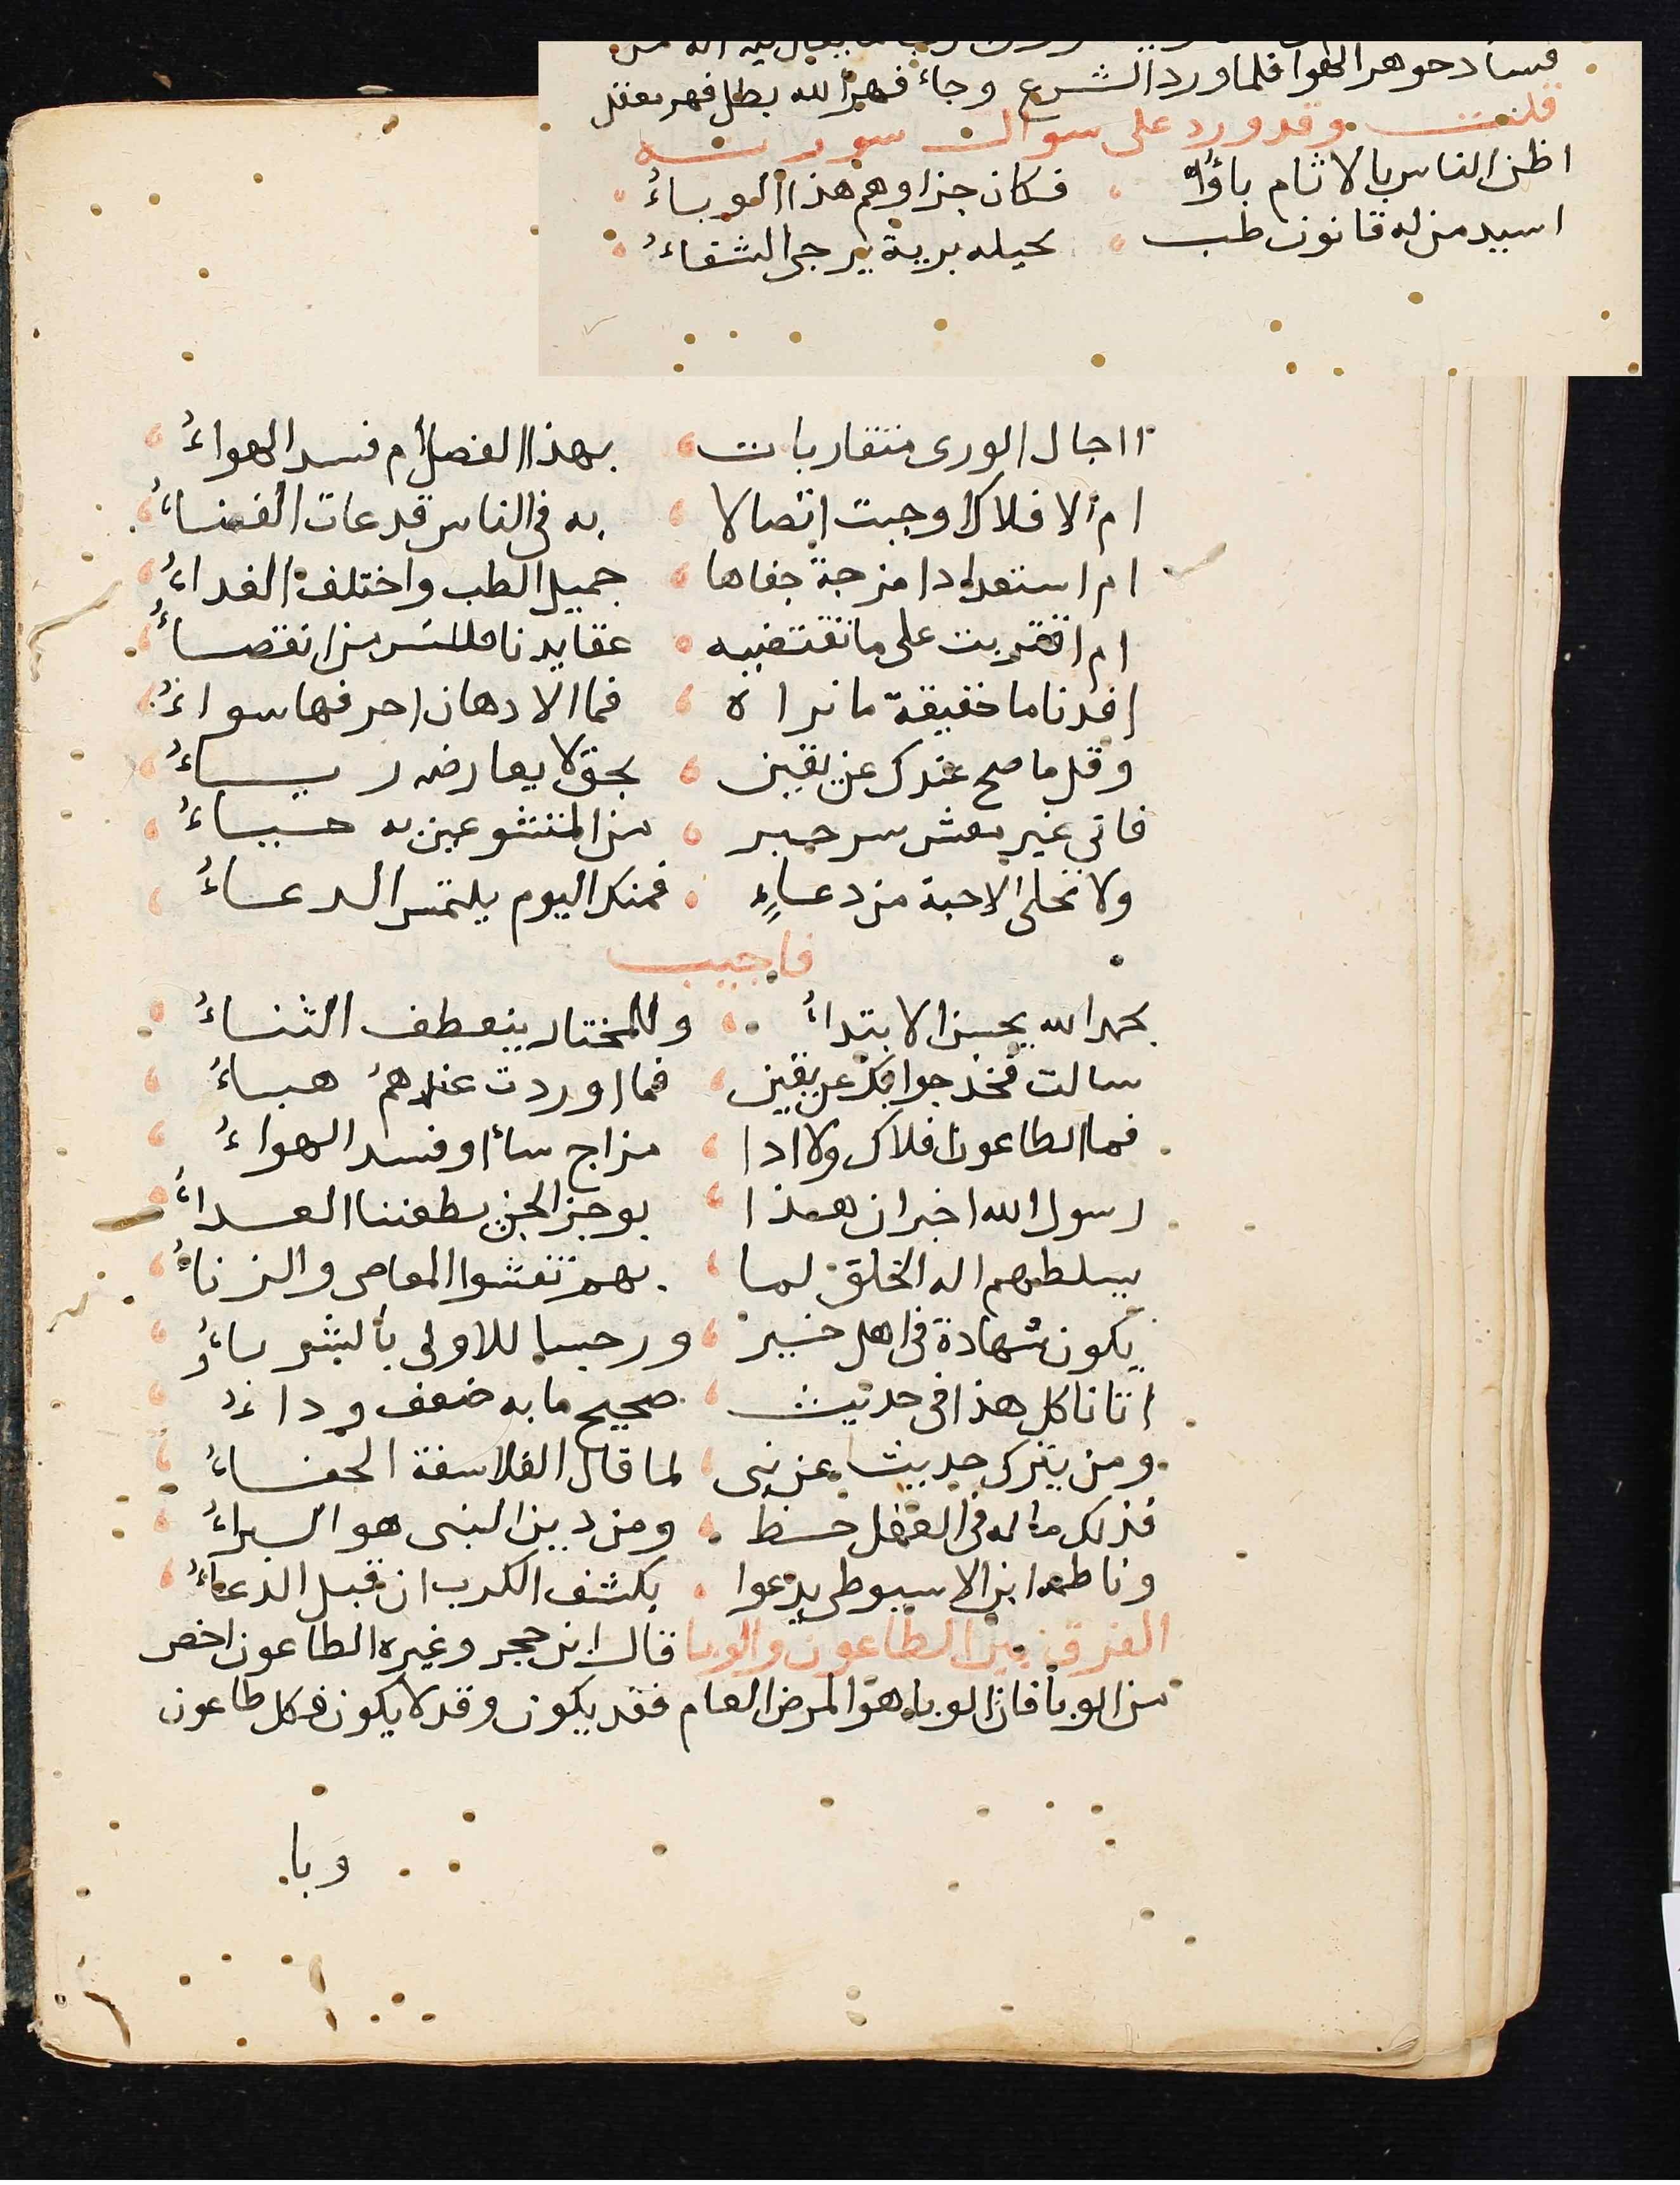 فساد جوهر الهوا فلما ورد الشرع وجاء فهر الله بطل فهر معقل
قلت وقد ورد على سوال سورته
اظن الناس بالاثام باؤا فكان جزاوهم هذا الوباء
اسيد من له قانون طب بحيله برية يرجى الشفاء
ااجال الورى متقاربات بهذا الفصل أم فسد الهواء
ام الافلاك اوجبت اتصالا به فى الناس قد عات الفناء
ام استعداد امزجة جفاها جميل الطب واختلف الغداء
ام اقتربت على ما تقتضيه عقايدنا من انقضاء
افدنا ما حقيقة ما نراه فما الادهان احرفها سواء
وقل ما صح عندك عن يقين بحق لا يعارضه رياء
فانى غير مفش سر حبر من المتشرعين به حباء
ولا تخلى الاحبة من دعاءٍ فمنك اليوم يلتمس الدعاء
فاجيب
بحمد الله يحسن الابتداء وللمختار ينعطف الثناء
سالت فخذ جوابك عن يقين فما اوردت عندهم هباء
فما الطاعون افلاك ولا اذا مزاج ساء او فسد الهواء
رسول الله اخبر ان هذا بوخز الجن يطعننا العداء
يسلطهم اله الخلق لما بهم تفشوا المعاصى والزناء
يكون شهادة فى اهل خير ورجسا للاولى بالشر باؤ
اتانا كل هذا فى حديث صحيح ما به ضعف وداء
ومن يترك حديثا عن نبى لما قال الفلاسفة الجفاء
فذلك ماله فى العقل حظ ومن دين النبى هو البراء
وناظمه ابن الاسيوطى يدعوا بكشف الكرب ان قبل الدعاء
الفرق بين الطاعون والوبا قال ابن حجر وغيره الطاعون اخص
من الوبا فان الوبا هو المرض العام فقد يكون وقد لا يكون فكل طاعون
وبا